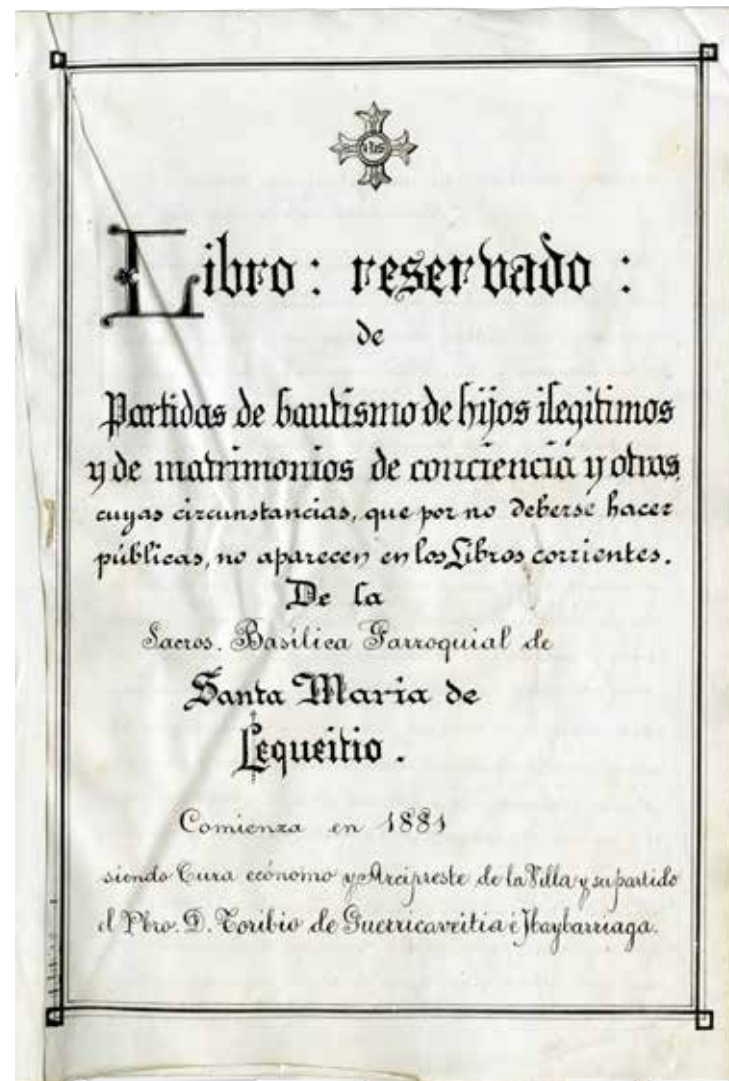 IHS
Libro : reservado :
de
Partidas de bautismo de hijos ilegitimos
y de matrimonios de conciencia y otras,
cuyas circunstancias, que por no deberse hacer
públicas, no aparecen en los Libros corrientes.
De la
Sacros. Basílica Parroquial de
Santa Maria de
Lequeitio .
Comienza en 1881
siendo Cura ecónomo y Arcipreste de la Villa y su partido
el Pbro. D. Toribio de Guerricaveitia é Ibaybarriaga.